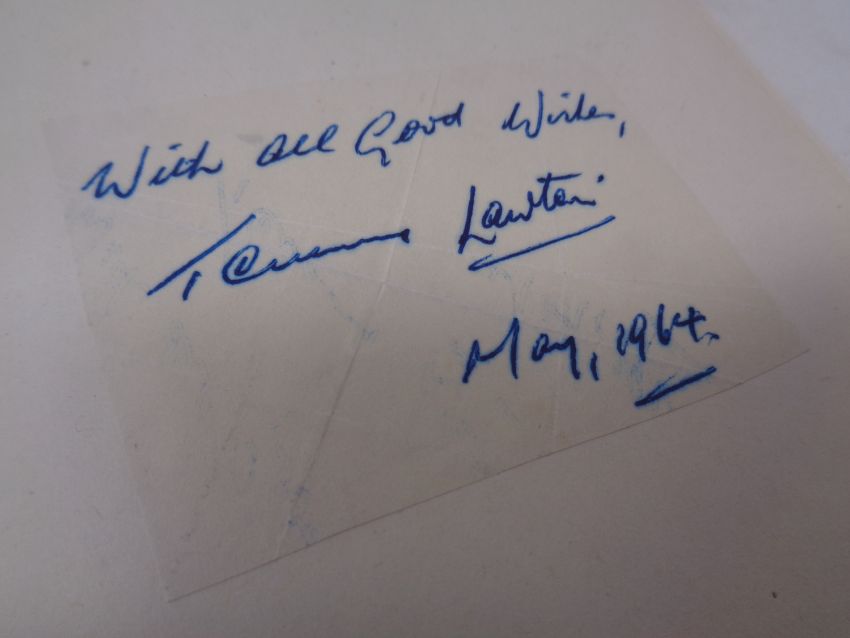 With all Good Wishes,
Terence Lawton
May, 1964.